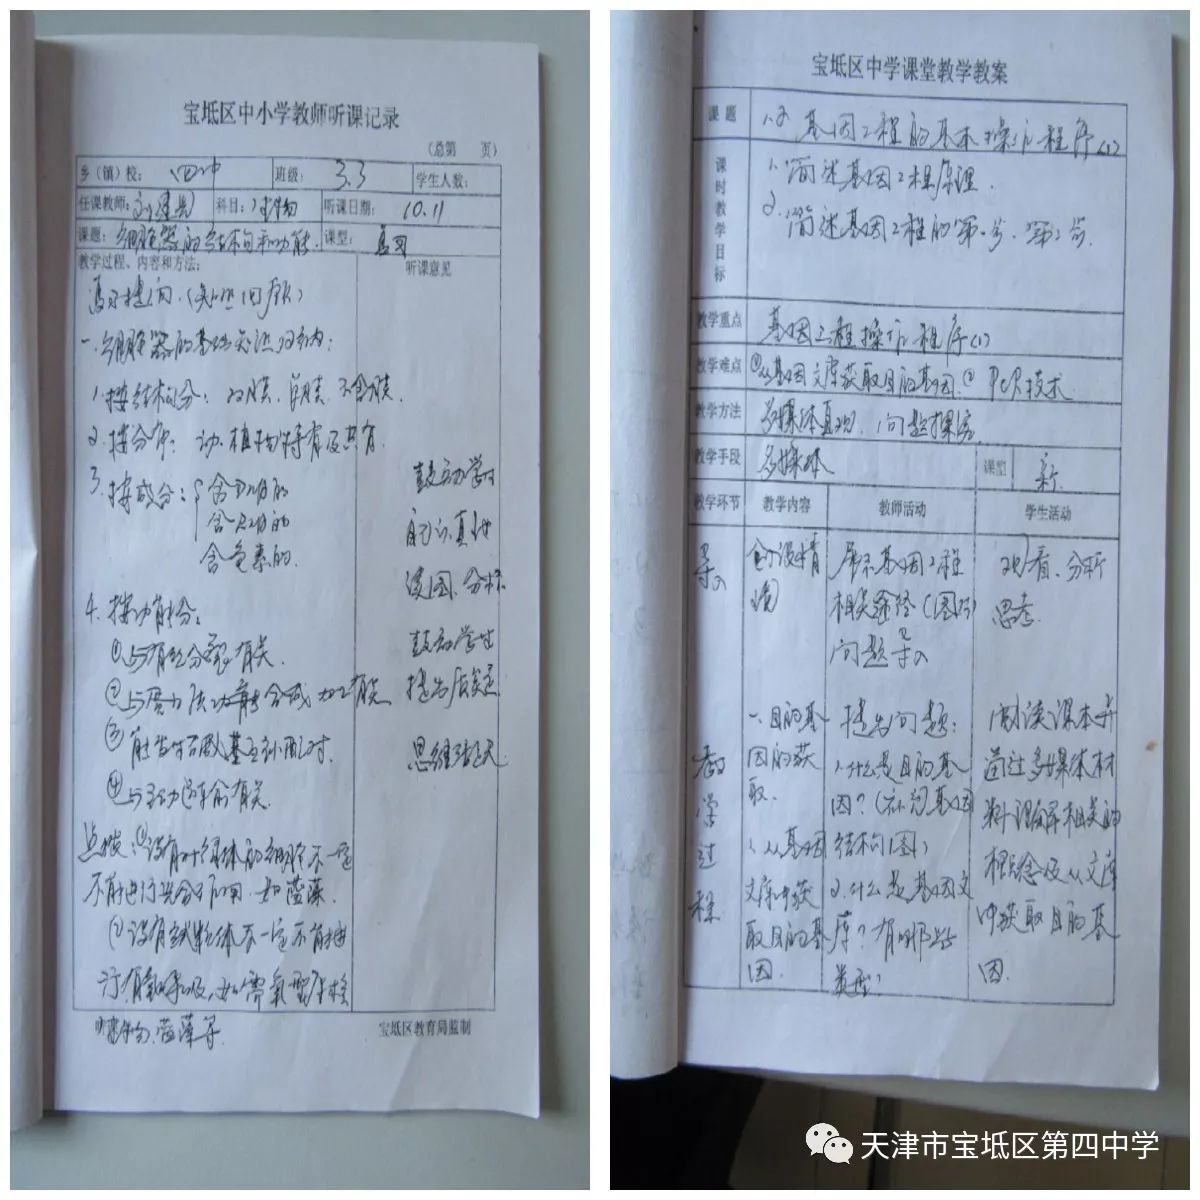 宝坻区中小学教师听课记录
(总第 页)
乡(镇)校: 四中 班级: 3.3 学生人数:
任课教师: 科目: 生物 听课日期: 10.11
课题: 细胞器的结构和功能 课型:
教学过程、内容和方法: 听课意见
复习提问.(知识回顾)
一.细胞器的基础知识归纳:
1.按结构分: 双膜、单膜、不含膜.
2.按分布: 动、植物特有及共有.
3.按成分: 含DNA的
含RNA的
含色素的.
4.按功能分:
①与有丝分裂有关.
②与蛋白合成加工有关
③能发生碱基互补配对.
④与主动运输有关.
点拨:①没有叶绿体的细胞不一定
不能进行光合作用.如蓝藻.
②没有线粒体不一定不能进
行有氧呼吸,如需氧型原核
生物.蓝藻等.
鼓励学生
自己认真
读图、分析
鼓励学生
提出质疑
思维活跃
宝坻区教育局监制
宝坻区中学课堂教学教案
课题 1.2 基因工程的基本操作程序(1)
课时教学目标
1.简述基因工程原理.
2.简述基因工程的第一步、第二步.
教学重点 基因工程操作程序(1)
教学难点 ①从基因文库获取目的基因.② PCR技术
教学方法 多媒体直观、问题探究
教学手段 多媒体 课型 新
教学环节 教学内容 教师活动 学生活动
导入
创设情
境
展示基因工程
相关途径(图片)
问题导入
观看、分析
思考.
教
学
过
程
一、目的基
因的获
取.
1.从基因
文库中获
取目的基
因.
提出问题:
1.什么是目的基
因?(补充基因
结构图)
2.什么是基因文
库?有哪些
类型?
阅读课本并
通过多媒体材
料理解相关的
概念及从文库
中获取目的基
因.
天津市宝坻区第四中学